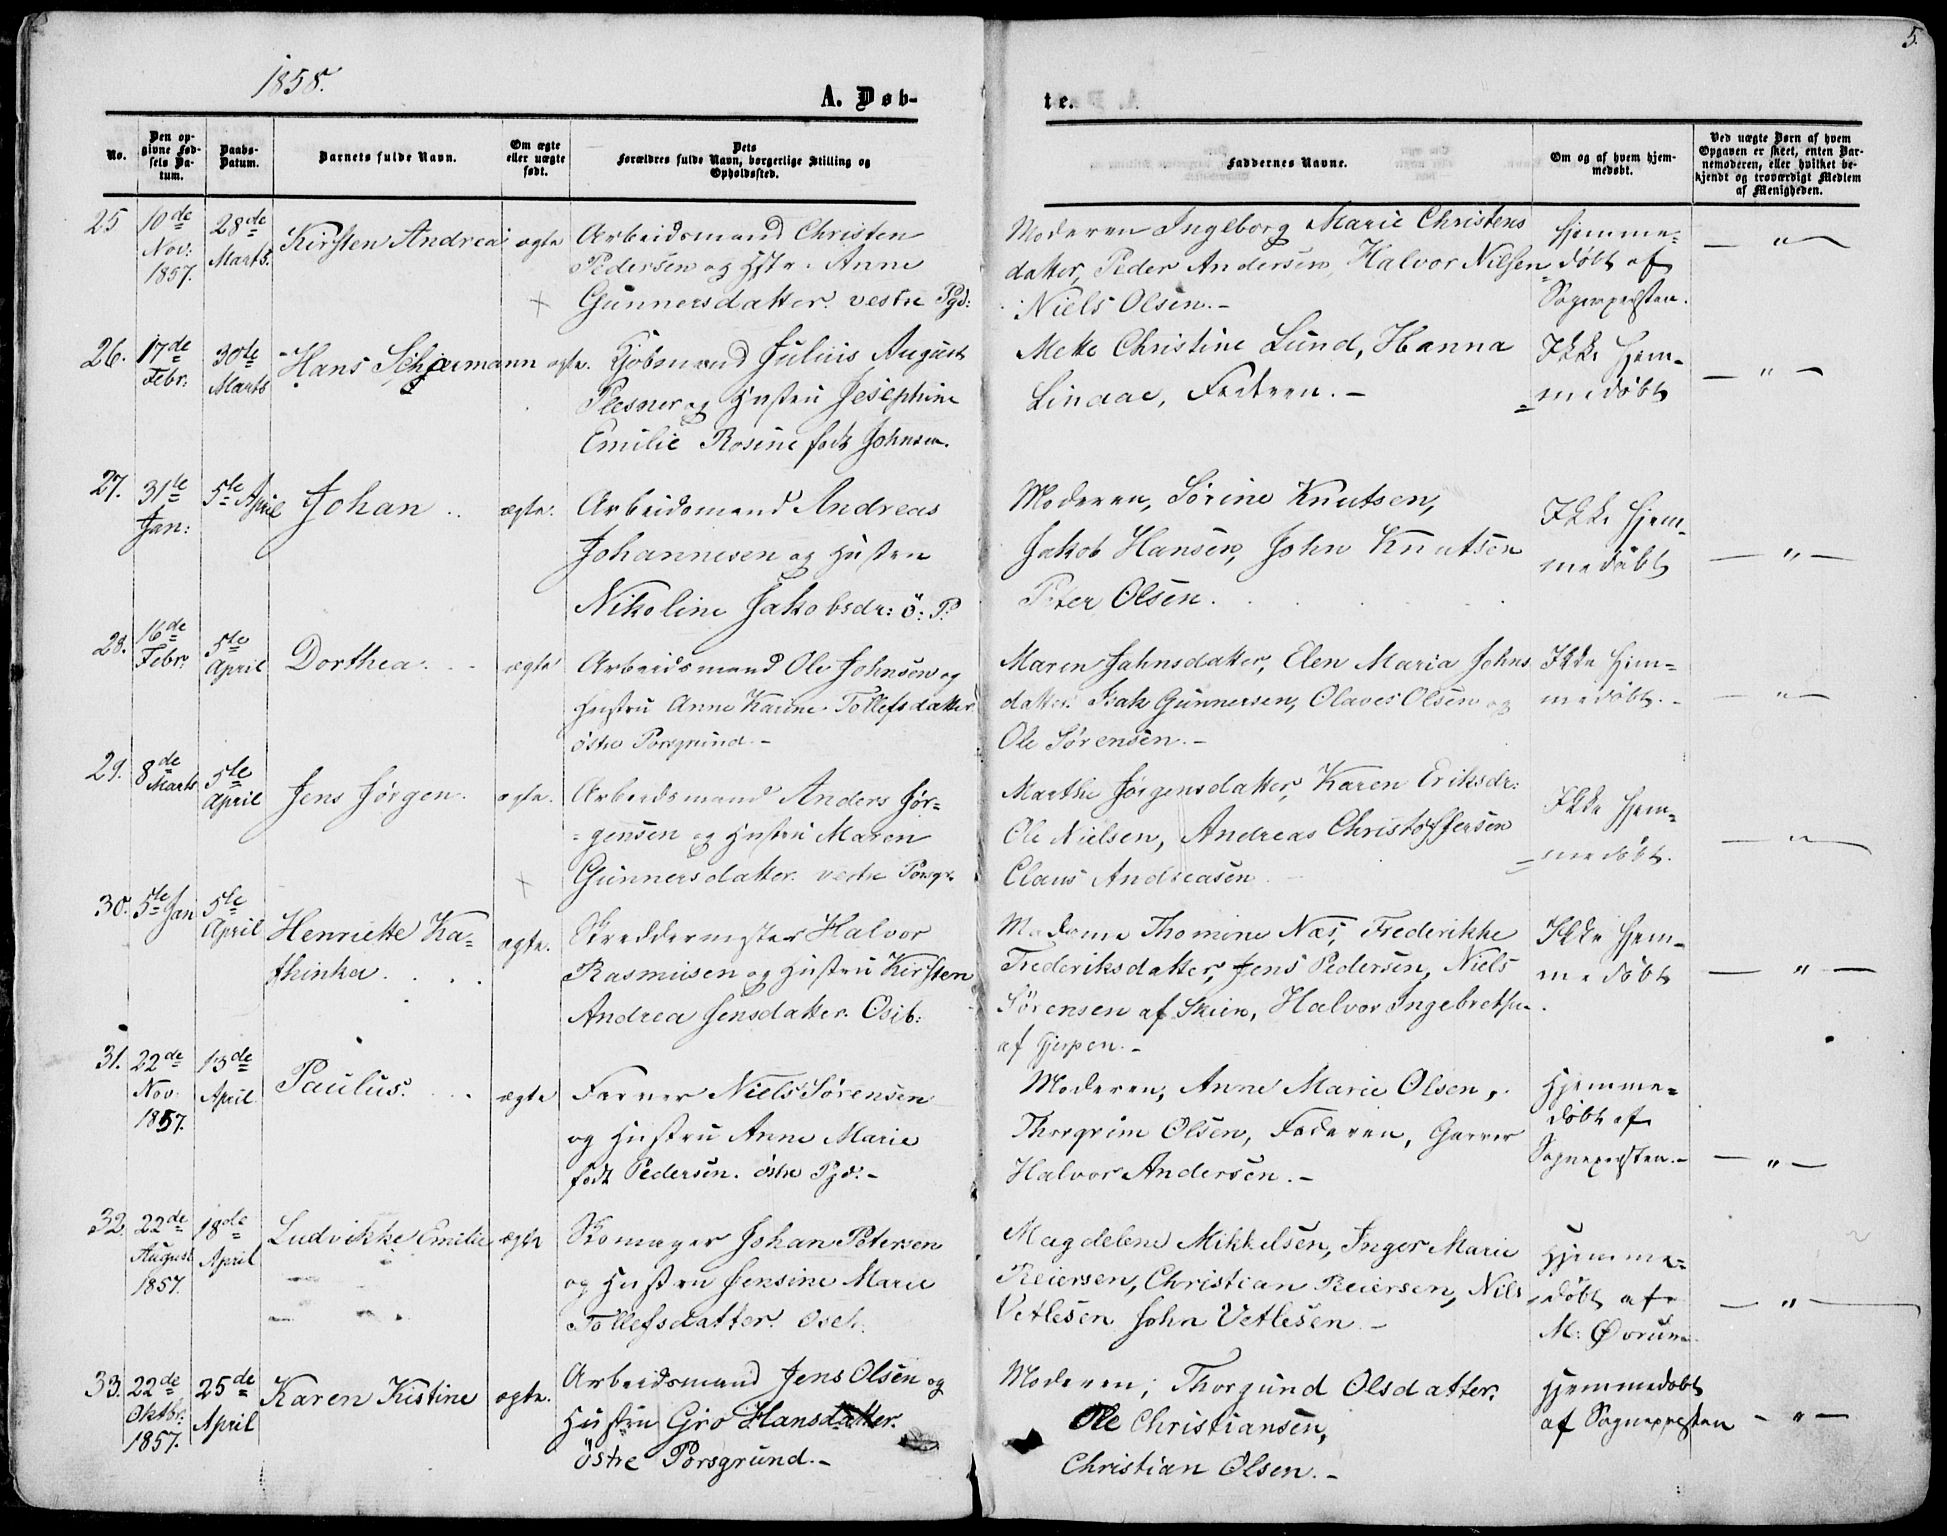 5.
1858.
A. Døb-
te.
No.
Den opgivne Fødsels Datum.
Daabs-Datum.
Barnets fulde Navn.
Om ægte eller uægte født.
Dets Forældres fulde Navn, borgerlige Stilling og Opholdssted.
Faddernes Navne.
Om og af hvem hjemmedøbt.
Ved uægte Børn af hvem Opgaven er skeet, enten Barnemoderen, eller hvilket bekjendt og troværdigt Medlem af Menigheden.
25 10de Nov: 1857. 28de Marts. Kirsten Andrea ægte
Arbeidsmand Christen
Pedersen og Hstr. Anne
Gunnersdatter. vestre Pgd:
Moderen Ingeborg Marie Christens
datter, Peder Andersen, Halvor Nilsen
Niels Olsen.-
Hjemme=
døbt af
Sognepresten.
— " —
26. 17de Febr. 30te Marts Hans Schjærmann ægte.
Kjøbmand Julius August
Plesner og Hustru Josephine
Emilie Rosine født Johnsen.
Mette Christine Lund, Hanna
Lindae, Faderen.-
Ikke Hjem=
medøbt
— " —
27. 31te Jan: 5te April Johan ægte.
Arbeidsmand Andreas
Johannesen og Hustru
Nikoline Jakobsdr: ö: P.
Moderen, Sörine Knutsen,
Jakob Hansen, John Knutsen
Peter Olsen.
Ikke Hjem=
medöbt
— " —
28. 16de Febr. 5te April Dorthea. ægte
Arbeidsmand Ole Johnsen og
Hustru Anne Karine Tollefsdatter
östre Porsgrund.-
Maren Jahnsdatter, Elen Maria Johns
datter. Isak Gunnersen, Olaves Olsen og
Ole Sörensen.-
Ikke Hjem=
medøbt.-
— " —
29. 8de Marts 5te April Jens Jörgen. ægte.
Arbeidsmand Anders Jör=
=gensen og Hustru Maren
Gunnersdatter. vestre Porsgr.
Marthe Jörgensdatter, Karen Eriksdr:
Ole Nielsen, Andreas Christoffersen
Claus Andreasen
Ikke Hjem=
medøbt.
— " —
30. 5te Jan 5te April Henriette Ka=
thinka ægte.
Skreddermester Halvor
Rasmusen og Hustru Kirsten
Andrea Jensdatter. Oseb:
Madame Thomine Næs, Frederikke
Frederiksdatter, Jens Pedersen, Niels
Sörensen af Skien, Halvor Ingebretsen
af Gjerpen.-
Ikke Hjem=
medøbt
— " —
31. 22de Nov. 1857. 13de April Paulus. ægte
Farver Niels Sörensen
og Hustru Anne Marie
født Pedersen. östre Pgd:-
Moderen, Anne Marie Olsen,
Thorgrim Olsen, Faderen, Garver
Halvor Andersen.-
Hjemme=
døbt af
Sognepresten.-
— " —
32. 22de August 1857. 18de April Ludvikke Emilie ægte
Skomager Johan Petersen
og Hustru Jensine Marie
Tollefsdatter. Oseb.
Magdelene Mikkelsen, Inger Marie
Reiersen, Christian Reiersen, Nils
Vetlesen John Vetlesen.-
Hjemme=
døbt af
M: Øvrum
— " —
33. 22de Oktbr. 1857. 25de April Karen Kistine ægte.
Arbeidsmand Jens Olsen og
Hustru Gro Hansdatter.
östre Porsgrund.-
Moderen, Thorgund Olsdatter.
Ole Christiansen,
Christian Olsen.-
Hjemmedøbt
af Sognepresten
— " —